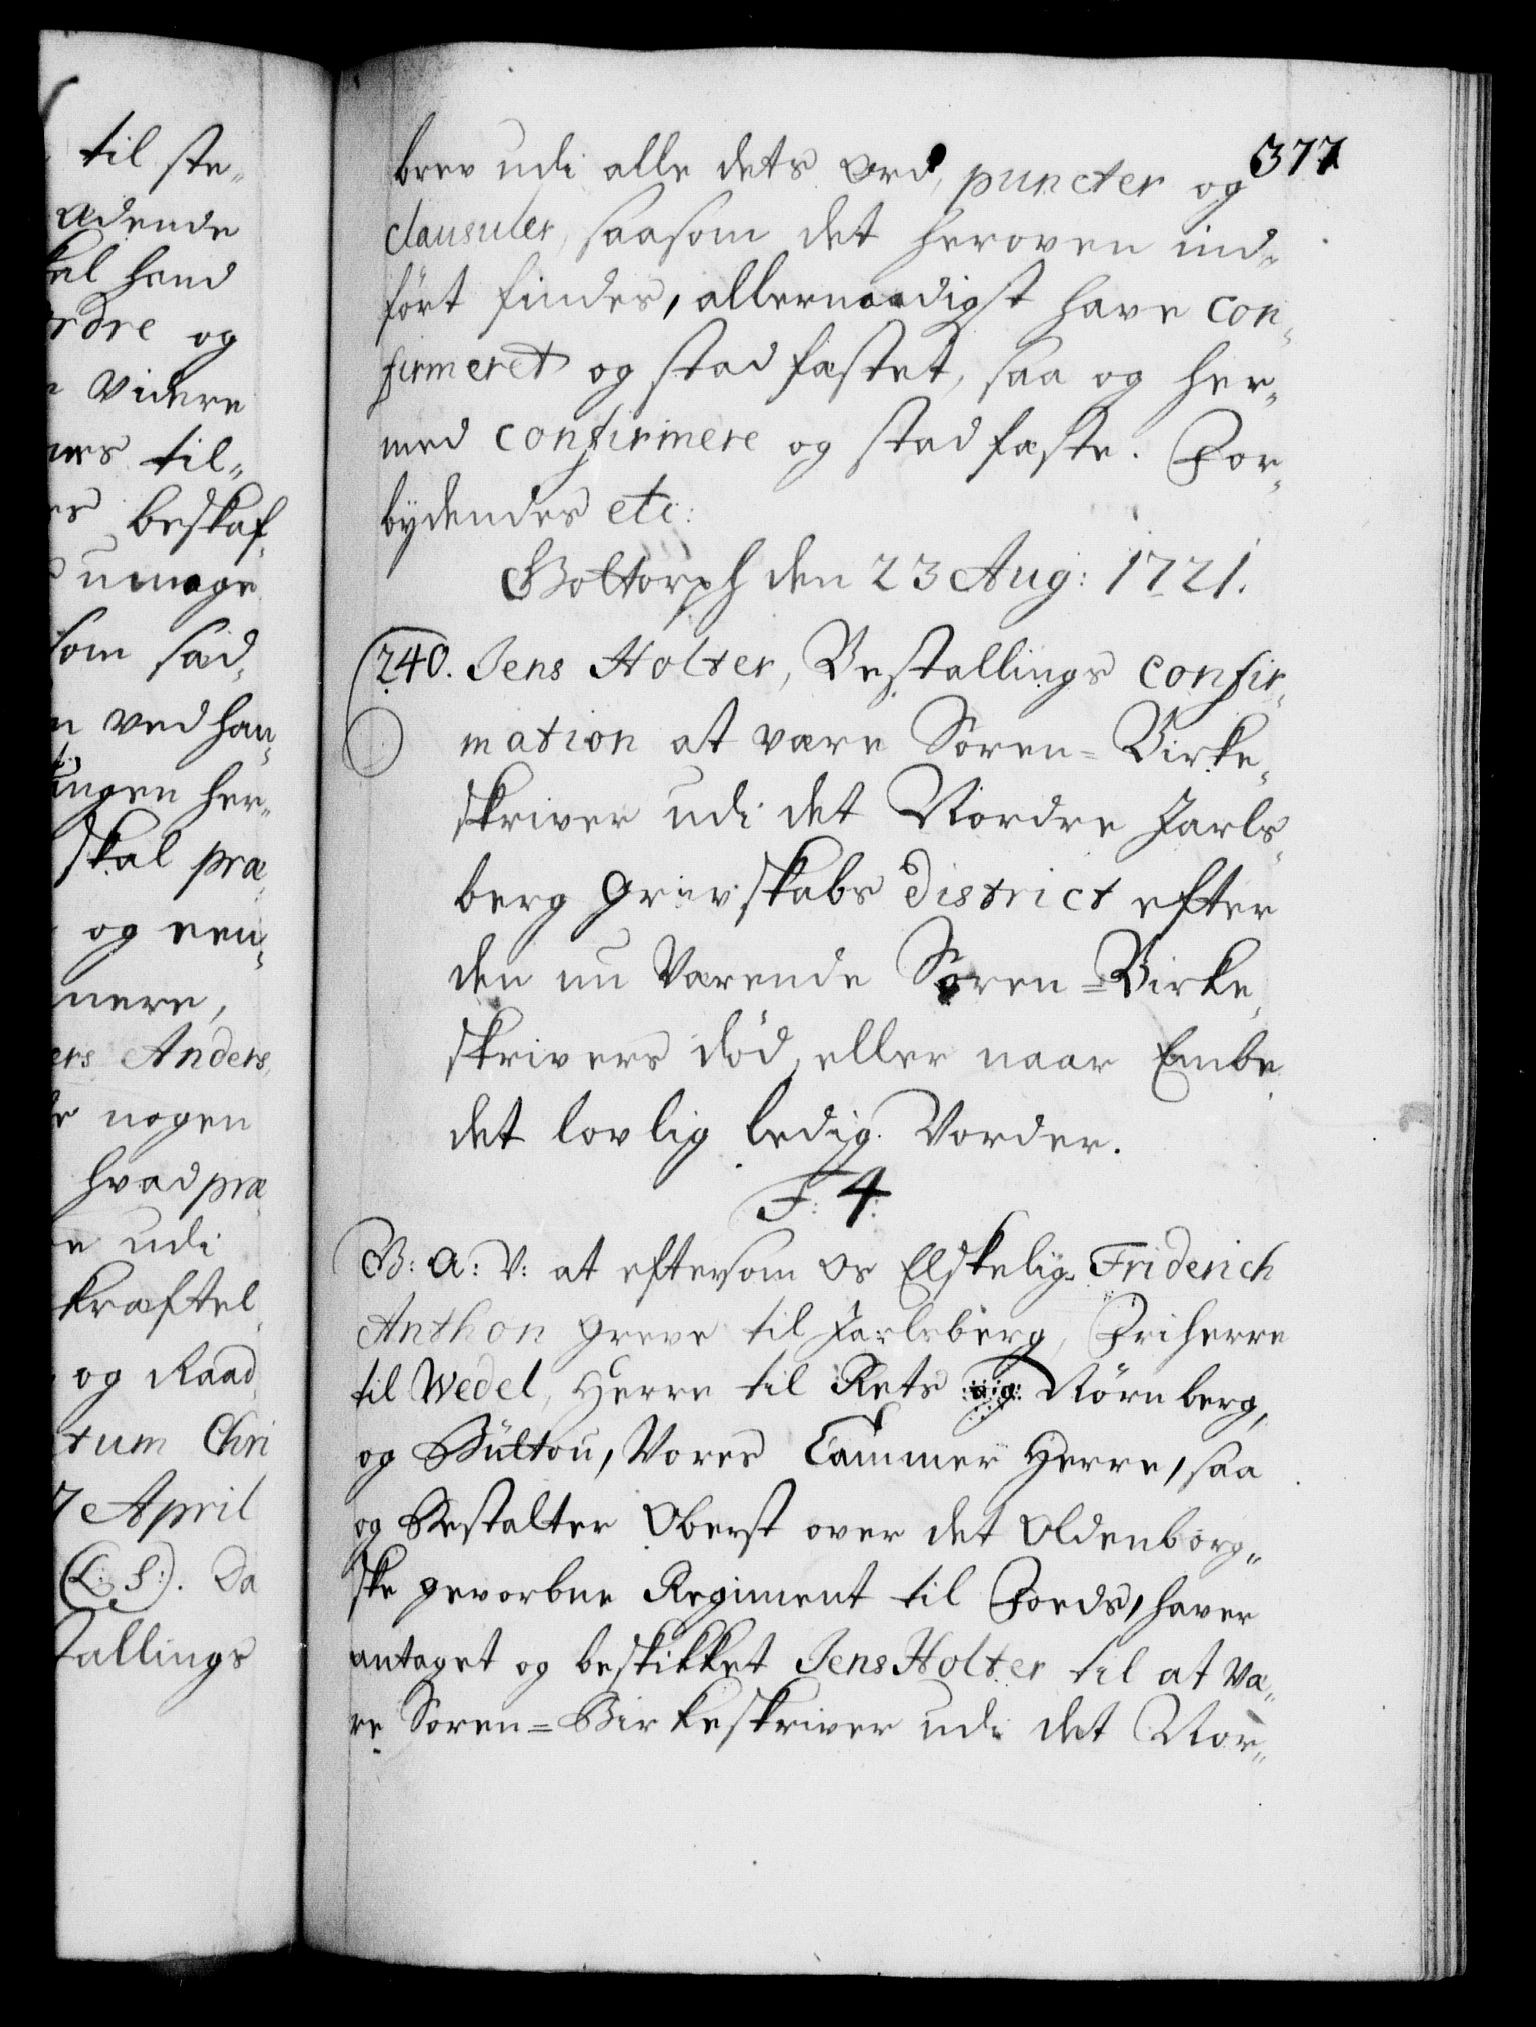 til ste„
adende
kal hand
rdre og
n videre
nes til„
es beskaf„
umage
som saad„
n ved han„
ingen her„
skal præ„
og een„
nere,
ers Anders„
nogen
hvad præ„
e udi
kræftel„
og Raad„
tum Chri
7 April
(L: S:). Da
tallings
377
brev udi alle dets Ord, puncter og
clausuler, saasom det heroven ind„
ført findes, allernaadigst have con„
firmeret og stadfæstet, saa og her„
med confirmere og stadfæste. For„
bydendes etc:
Gottorph den 23 Aug: 1721.
240. Jens Holter, Bestallings confir„
mation at være Soren=Birke„
skriver udi det Nordre Jarls„
berg Grevskabs District efter
den nu værende Soren=Birke„
skrivers død, eller naar Embe„
det lovlig ledig vorder.
F: 4:
G: A: V: at eftersom Os Elskelig Friderich
Anthon Greve til Jarlsberg, Friherre
til Wedel, Herre til Rets og Nörnberg,
og Büttou, Vores Cammer Herre, saa
og Bestalter Oberst over det Oldenborg„
ske gevorbne Regiment til Foeds, haver
antaget og beskikket Jens Holter til at væ„
re Soren=Birkeskriver udi det Nor„